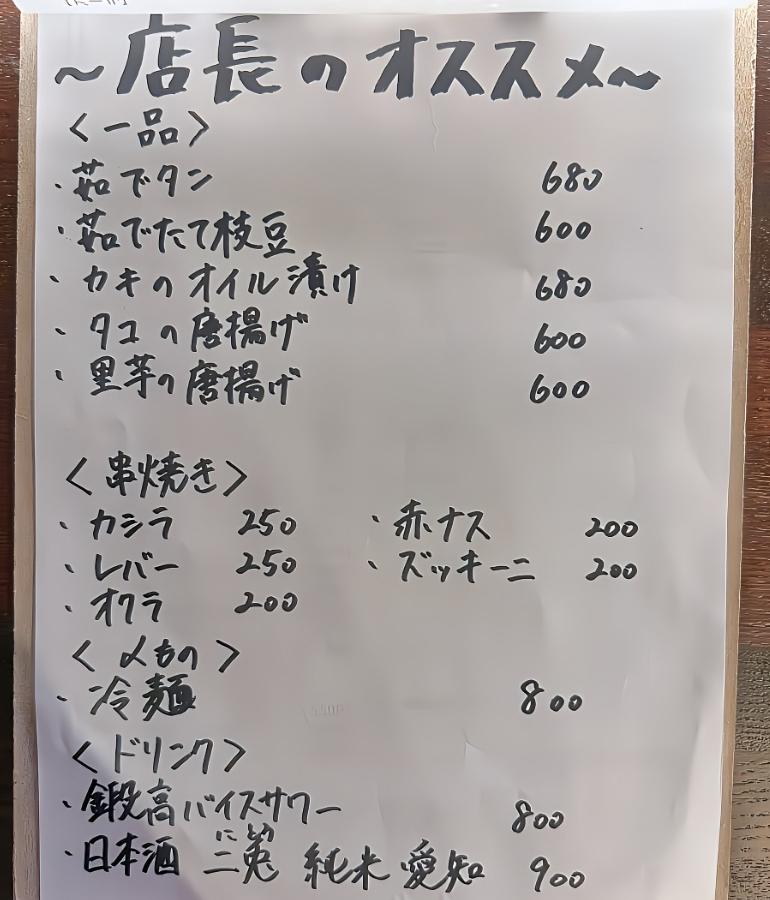 ~店長のオススメ~
<一品>
・茹でタン 680
・茹でたて枝豆 600
・カキのオイル漬け 680
・タコの唐揚げ 600
・里芋の唐揚げ 600
<串焼き>
・カシラ 250 ・赤ナス 200
・レバー 250 ・ズッキーニ 200
・オクラ 200
<〆もの>
・冷麺 800
<ドリンク>
・鍛高バイスサワー 800
にと
・日本酒 二兎 純米 愛知 900